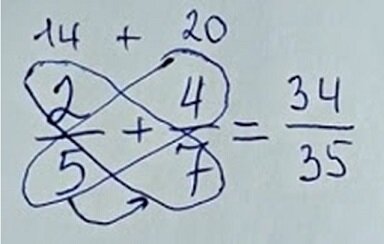 14 + 20
2/5 + 4/7 = 34/35